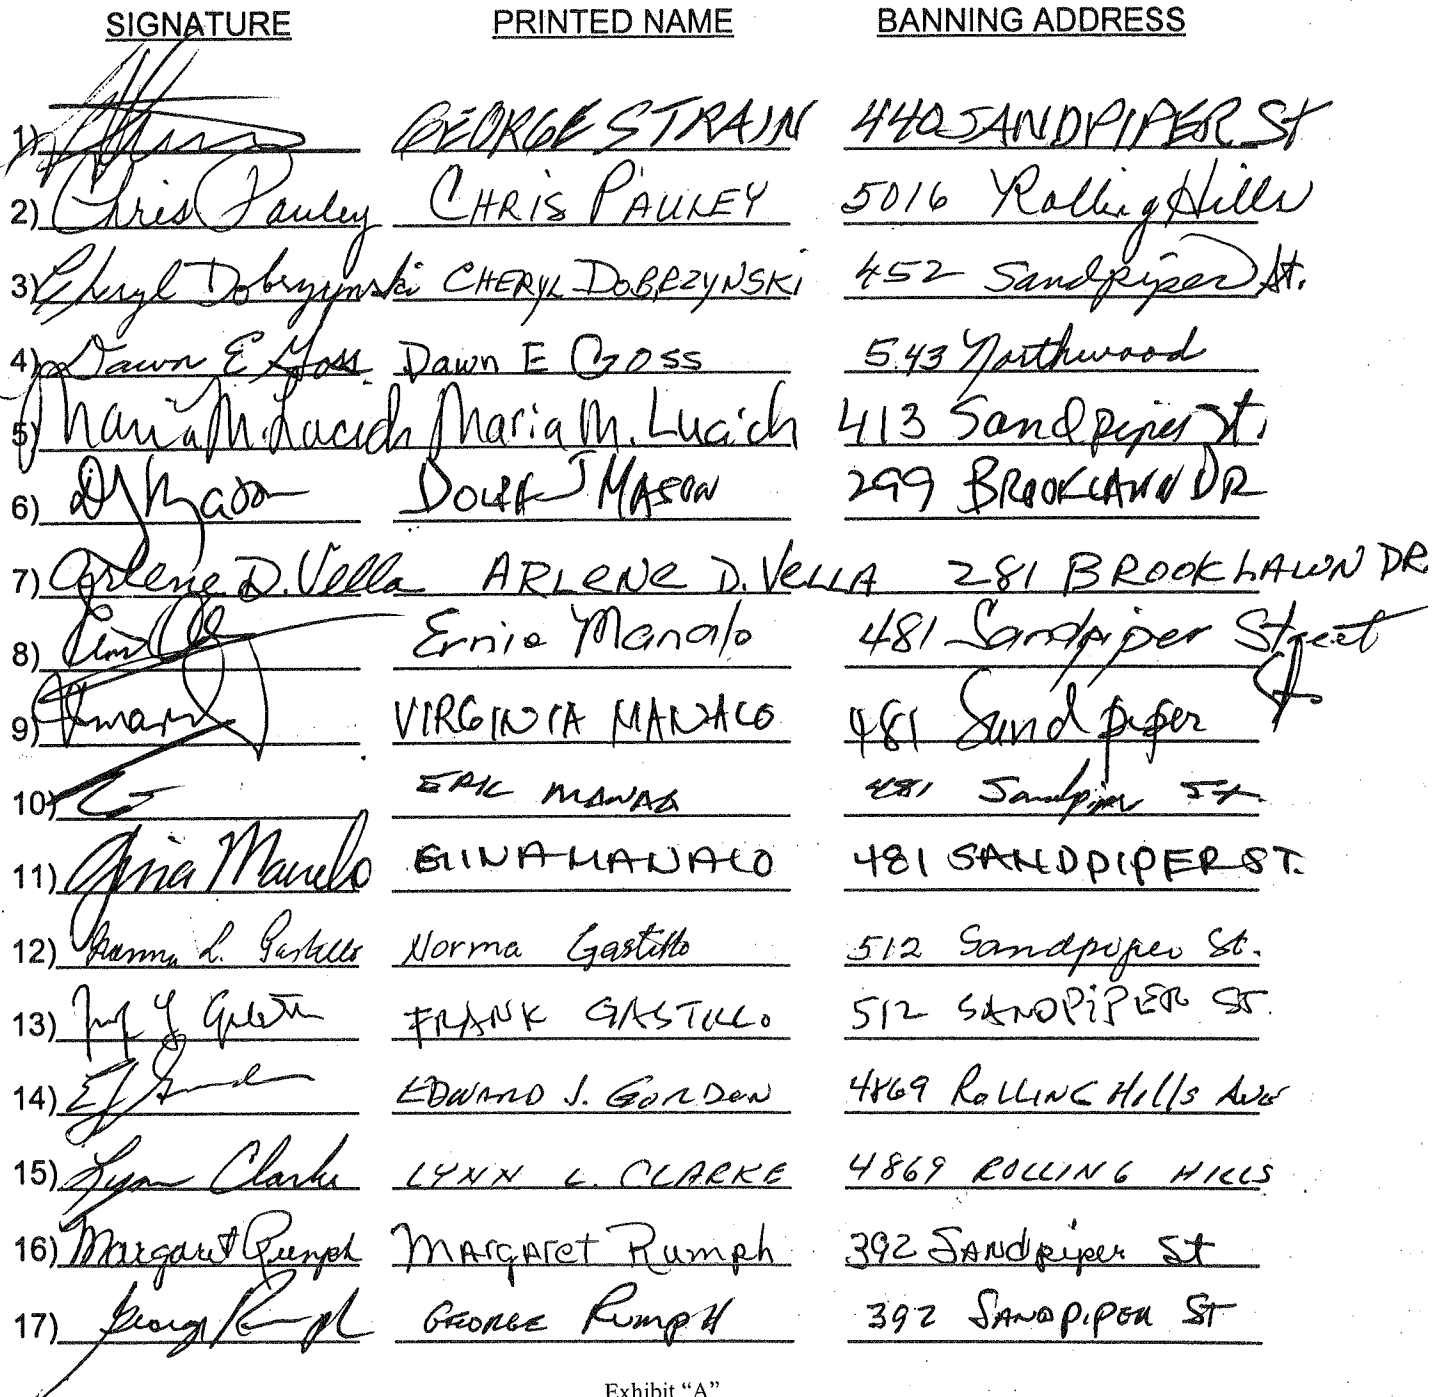 SIGNATURE PRINTED NAME BANNING ADDRESS
1) GEORGE STRAIN 440 SANDPIPER St
2) Chris Pauley CHRIS PAULEY 5016 Rolling Hills
3) Cheryl Dobrzynski CHERYL DOBRZYNSKI 452 Sandpiper St.
4) Dawn E Goss Dawn E Goss 543 Northwood
5) Maria M. Lucich Maria M. Lucich 413 Sandpiper St.
6) DJ Mason J MASON 299 BROOKLAWN DR
7) Arlene D. Vella ARLENE D. VELLA 281 BROOKLAWN DR
8) Ernie Manalo 481 Sandpiper Street
9) VIRGINIA MANALO 481 Sandpiper St
10) ERIC 481 Sandpiper St.
11) Gina Manalo GINA MANALO 481 SANDPIPER ST.
12) Norma L. Gastillo Norma Gastillo 512 Sandpiper St.
13) FRANK GASTILLO 512 SANDPIPER ST.
14) EJ Gordon EDWARD J. GORDON 4869 ROLLING Hills Ave
15) Lynn Clarke LYNN L. CLARKE 4869 ROLLING HILLS
16) Margaret Rumph Margaret Rumph 392 Sandpiper St
17) George Rumph GEORGE RUMPH 392 SANDPIPER ST
Exhibit "A"